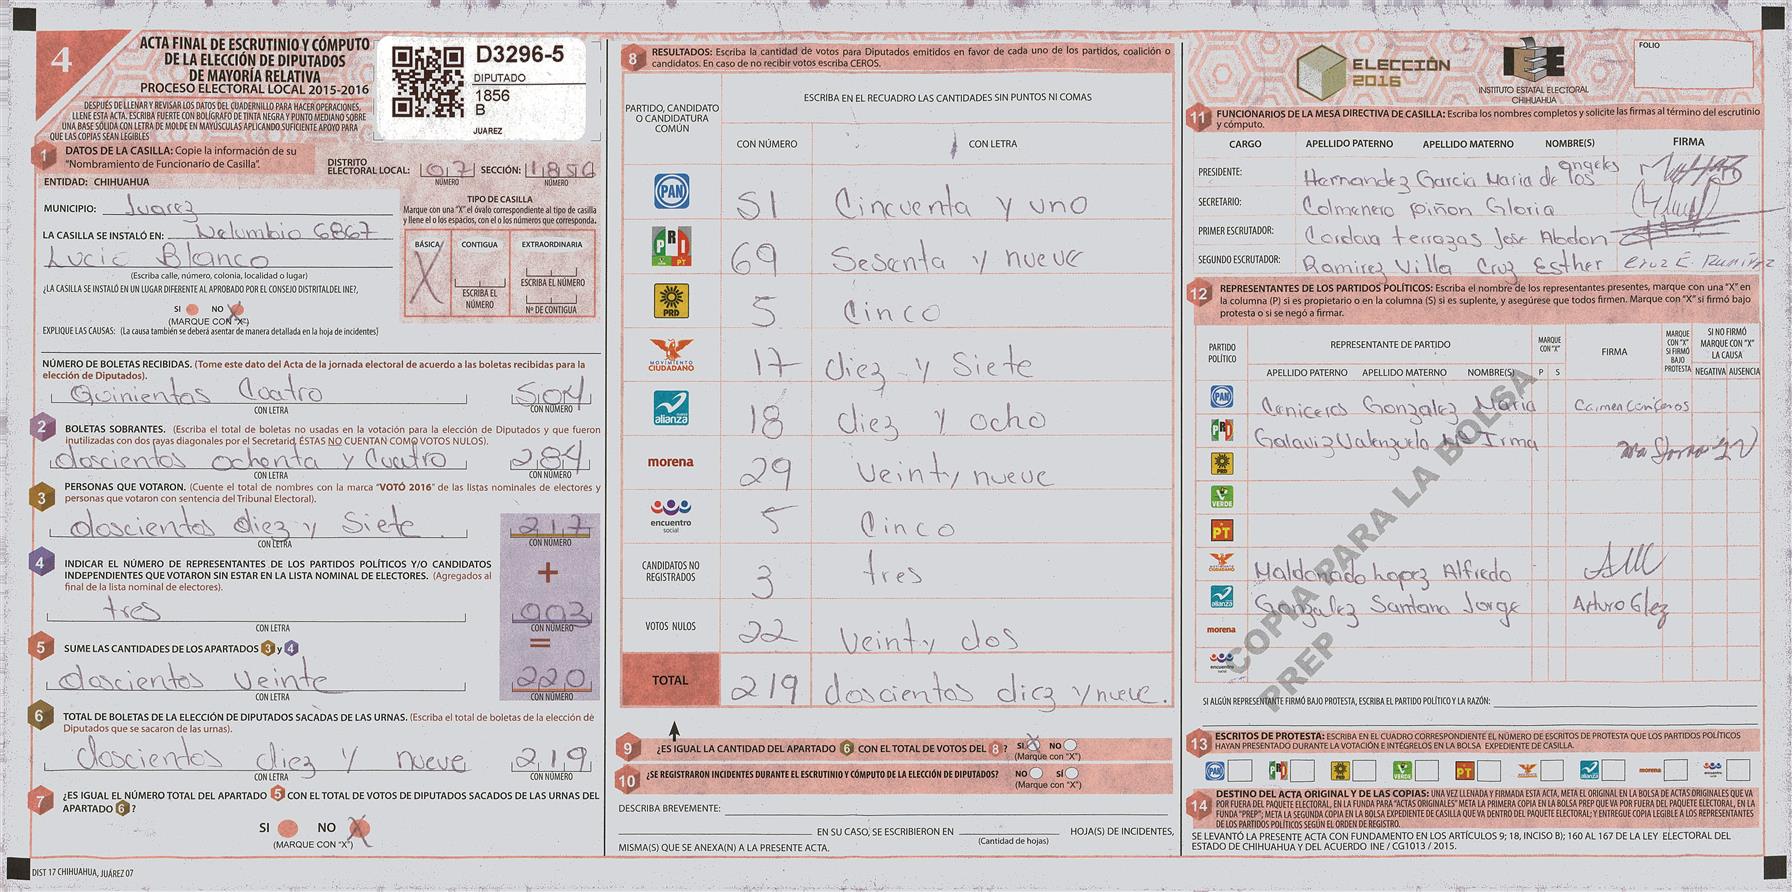 4
ACTA FINAL DE ESCRUTINIO Y CÓMPUTO
DE LA ELECCIÓN DE DIPUTADOS
DE MAYORÍA RELATIVA
PROCESO ELECTORAL LOCAL 2015-2016
DESPUÉS DE LLENAR Y REVISAR LOS DATOS DEL CUADERNILLO PARA HACER OPERACIONES,
LLENE ESTA ACTA. ESCRIBA FUERTE CON BOLÍGRAFO DE TINTA NEGRA Y PUNTO MEDIANO SOBRE
UNA BASE SÓLIDA CON LETRA DE MOLDE EN MAYÚSCULAS APLICANDO SUFICIENTE APOYO PARA
QUE LAS COPIAS SEAN LEGIBLES
D3296-5
DIPUTADO
1856
B
JUAREZ
1 DATOS DE LA CASILLA: Copie la información de su
"Nombramiento de Funcionario de Casilla".
DISTRITO
ELECTORAL LOCAL: 07 SECCIÓN: 1856
NÚMERO NÚMERO
ENTIDAD: CHIHUAHUA
MUNICIPIO: Juarez
LA CASILLA SE INSTALÓ EN: Nelumbio 6867
Lucio Blanco
(Escriba calle, número, colonia, localidad o lugar)
¿LA CASILLA SE INSTALÓ EN UN LUGAR DIFERENTE AL APROBADO POR EL CONSEJO DISTRITAL DEL INE?,
SI NO X
(MARQUE CON "X")
EXPLIQUE LAS CAUSAS: (La causa también se deberá asentar de manera detallada en la hoja de incidentes)
TIPO DE CASILLA
Marque con una "X" el óvalo correspondiente al tipo de casilla
y llene el o los espacios, con el o los números que corresponda.
BÁSICA CONTIGUA EXTRAORDINARIA
X
ESCRIBA EL NÚMERO
ESCRIBA EL NÚMERO
Nº DE CONTIGUA
NÚMERO DE BOLETAS RECIBIDAS. (Tome este dato del Acta de la jornada electoral de acuerdo a las boletas recibidas para la
elección de Diputados).
Quinientas Cuatro 504
CON LETRA CON NÚMERO
2 BOLETAS SOBRANTES. (Escriba el total de boletas no usadas en la votación para la elección de Diputados y que fueron
inutilizadas con dos rayas diagonales por el Secretario, ÉSTAS NO CUENTAN COMO VOTOS NULOS).
doscientos ochenta y Cuatro 284
CON LETRA CON NÚMERO
3 PERSONAS QUE VOTARON. (Cuente el total de nombres con la marca "VOTÓ 2016" de las listas nominales de electores y
personas que votaron con sentencia del Tribunal Electoral).
doscientos diez y Siete 217
CON LETRA CON NÚMERO
+
4 INDICAR EL NÚMERO DE REPRESENTANTES DE LOS PARTIDOS POLÍTICOS Y/O CANDIDATOS
INDEPENDIENTES QUE VOTARON SIN ESTAR EN LA LISTA NOMINAL DE ELECTORES. (Agregados al
final de la lista nominal de electores).
tres 003
CON LETRA CON NÚMERO
=
5 SUME LAS CANTIDADES DE LOS APARTADOS 3 y 4
doscientos veinte 220
CON LETRA CON NÚMERO
6 TOTAL DE BOLETAS DE LA ELECCIÓN DE DIPUTADOS SACADAS DE LAS URNAS. (Escriba el total de boletas de la elección de
Diputados que se sacaron de las urnas).
doscientos diez y nueve 219
CON LETRA CON NÚMERO
7 ¿ES IGUAL EL NÚMERO TOTAL DEL APARTADO 5 CON EL TOTAL DE VOTOS DE DIPUTADOS SACADOS DE LAS URNAS DEL
APARTADO 6?
SI NO X
(MARQUE CON "X")
DIST 17 CHIHUAHUA, JUÁREZ 07
8 RESULTADOS: Escriba la cantidad de votos para Diputados emitidos en favor de cada uno de los partidos, coalición o
candidatos. En caso de no recibir votos escriba CEROS.
PARTIDO, CANDIDATO
O CANDIDATURA
COMÚN
ESCRIBA EN EL RECUADRO LAS CANTIDADES SIN PUNTOS NI COMAS
CON NÚMERO CON LETRA
PAN 51 Cincuenta y uno
PRI PT 69 Sesenta y nueve
PRD 5 Cinco
MOVIMIENTO CIUDADANO 17 diez y Siete
nueva alianza 18 diez y ocho
morena 29 veinty nueve
encuentro social 5 Cinco
CANDIDATOS NO REGISTRADOS 3 tres
VOTOS NULOS 22 veinty dos
TOTAL 219 doscientos diez y nueve.
9 ¿ES IGUAL LA CANTIDAD DEL APARTADO 6 CON EL TOTAL DE VOTOS DEL 8? SI X NO
(Marque con "X")
10 ¿SE REGISTRARON INCIDENTES DURANTE EL ESCRUTINIO Y CÓMPUTO DE LA ELECCIÓN DE DIPUTADOS? NO SÍ
(Marque con "X")
DESCRIBA BREVEMENTE:
EN SU CASO, SE ESCRIBIERON EN HOJA(S) DE INCIDENTES,
(Cantidad de hojas)
MISMA(S) QUE SE ANEXA(N) A LA PRESENTE ACTA.
ELECCIÓN
2016
IEE
INSTITUTO ESTATAL ELECTORAL
CHIHUAHUA
FOLIO
11 FUNCIONARIOS DE LA MESA DIRECTIVA DE CASILLA: Escriba los nombres completos y solicite las firmas al término del escrutinio
y cómputo.
CARGO APELLIDO PATERNO APELLIDO MATERNO NOMBRE(S) FIRMA
PRESIDENTE: Hernandez Garcia Maria de los angeles
SECRETARIO: Colmenero Piñon Gloria
PRIMER ESCRUTADOR: Cordova terrazas Jose Abdon
SEGUNDO ESCRUTADOR: Ramirez Villa Cruz Esther Cruz E. Ramirez
12 REPRESENTANTES DE LOS PARTIDOS POLÍTICOS: Escriba el nombre de los representantes presentes, marque con una "X" en
la columna (P) si es propietario o en la columna (S) si es suplente, y asegúrese que todos firmen. Marque con "X" si firmó bajo
protesta o si se negó a firmar.
PARTIDO POLÍTICO
REPRESENTANTE DE PARTIDO
MARQUE CON "X"
FIRMA
MARQUE CON "X" SI FIRMÓ BAJO PROTESTA
SI NO FIRMÓ MARQUE CON "X" LA CAUSA
APELLIDO PATERNO APELLIDO MATERNO NOMBRE(S) P S NEGATIVA AUSENCIA
PAN Ceniceros Gonzalez Maria Carmen Ceniceros
PRI Galaviz Valenzuela Ma Irma
PRD
VERDE
PT
MOVIMIENTO CIUDADANO Maldonado Lopez Alfredo
alianza Gonzalez Santana Jorge Arturo Glez
morena
encuentro social
COPIA PARA LA BOLSA
PREP
SI ALGÚN REPRESENTANTE FIRMÓ BAJO PROTESTA, ESCRIBA EL PARTIDO POLÍTICO Y LA RAZÓN:
13 ESCRITOS DE PROTESTA: ESCRIBA EN EL CUADRO CORRESPONDIENTE EL NÚMERO DE ESCRITOS DE PROTESTA QUE LOS PARTIDOS POLÍTICOS
HAYAN PRESENTADO DURANTE LA VOTACIÓN E INTÉGRELOS EN LA BOLSA EXPEDIENTE DE CASILLA.
PAN PRI PRD VERDE PT alianza morena
14 DESTINO DEL ACTA ORIGINAL Y DE LAS COPIAS: UNA VEZ LLENADA Y FIRMADA ESTA ACTA, META EL ORIGINAL EN LA BOLSA DE ACTAS ORIGINALES QUE VA
POR FUERA DEL PAQUETE ELECTORAL, EN LA FUNDA PARA "ACTAS ORIGINALES" META LA PRIMERA COPIA EN LA BOLSA PREP QUE VA POR FUERA DEL PAQUETE ELECTORAL, EN LA
FUNDA "PREP"; META LA SEGUNDA COPIA EN LA BOLSA EXPEDIENTE DE CASILLA QUE VA DENTRO DEL PAQUETE ELECTORAL; Y ENTREGUE COPIA LEGIBLE A LOS REPRESENTANTES
DE LOS PARTIDOS POLÍTICOS SEGÚN EL ORDEN DE REGISTRO.
SE LEVANTÓ LA PRESENTE ACTA CON FUNDAMENTO EN LOS ARTÍCULOS 9; 18, INCISO B); 160 AL 167 DE LA LEY ELECTORAL DEL
ESTADO DE CHIHUAHUA Y DEL ACUERDO INE / CG1013 / 2015.